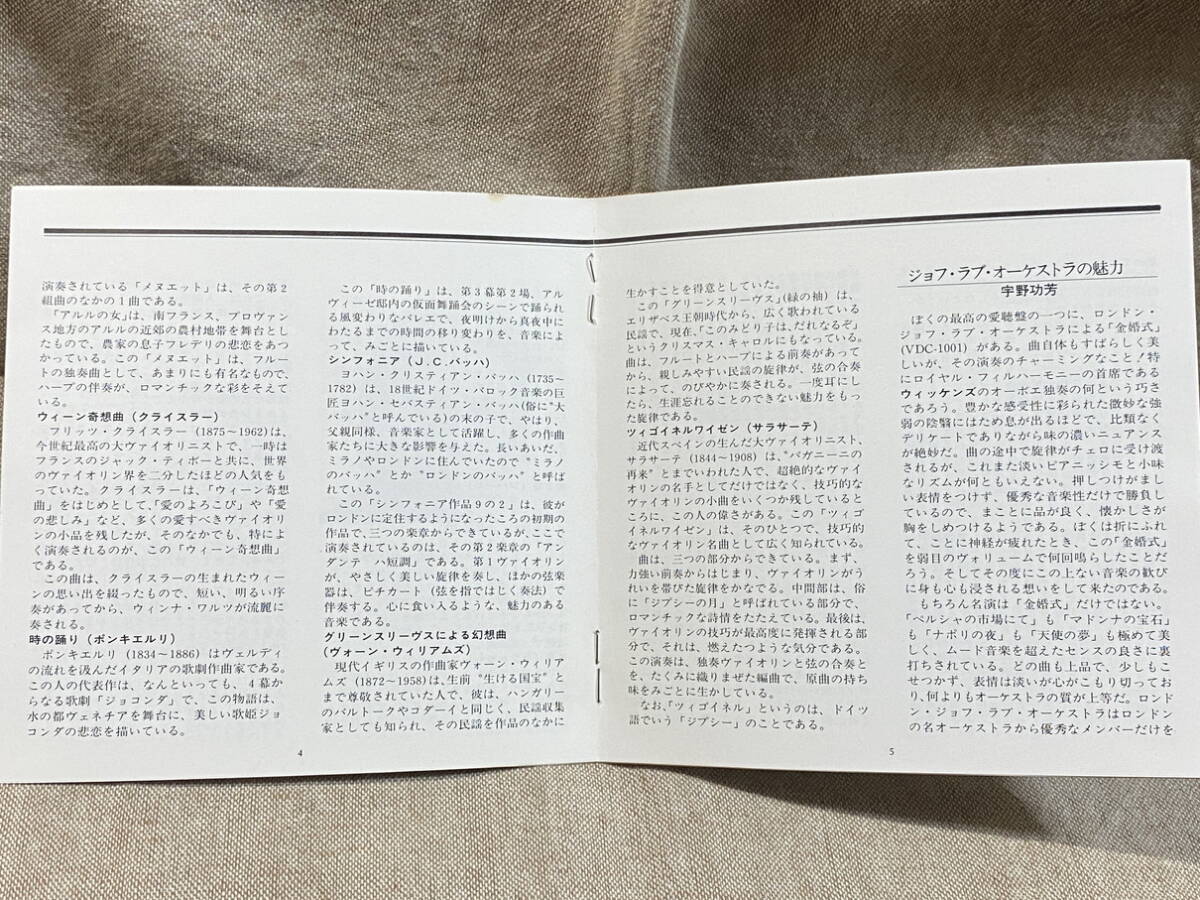 演奏されている「メヌエット」は、その第2
組曲のなかの1曲である。
「アルルの女」は、南フランス、プロヴァン
ス地方のアルルの近郊の農村地帯を舞台とし
たもので、農家の息子フレデリの悲恋をあつ
かっている。この「メヌエット」は、フルー
トの独奏曲として、あまりにも有名なもので、
ハープの伴奏が、ロマンチックな彩をそえて
いる。
ウィーン奇想曲(クライスラー)
フリッツ・クライスラー(1875~1962)は、
今世紀最高の大ヴァイオリニストで、一時は
フランスのジャック・ティボーと共に、世界
のヴァイオリン界を二分したほどの人気をも
っていた。クライスラーは、「ウィーン奇想
曲」をはじめとして、「愛のよろこび」や「愛
の悲しみ」など、多くの愛すべきヴァイオリ
ンの小品を残したが、そのなかでも、特によ
く演奏されるのが、この「ウィーン奇想曲」
である。
この曲は、クライスラーの生まれたウィー
ンの思い出を綴ったもので、短い、明るい序
奏があってから、ウィンナ・ワルツが流麗に
奏される。
時の踊り(ポンキエルリ)
ポンキエルリ(1834~1886)はヴェルディ
の流れを汲んだイタリアの歌劇作曲家である。
この人の代表作は、なんといっても、4幕か
らなる歌劇「ジョコンダ」で、この物語は、
水の都ヴェネチアを舞台に、美しい歌姫ジョ
コンダの悲恋を描いている。
この「時の踊り」は、第3幕第2場、アル
ヴィーゼ邸内の仮面舞踊会のシーンで踊られ
る風変わりなバレエで、夜明けから真夜中に
わたるまでの時間の移り変わりを、音楽によ
って、みごとに描いている。
シンフォニア(J.C.バッハ)
ヨハン・クリスティアン・バッハ(1735~
1782)は、18世紀ドイツ・バロック音楽の巨
匠ヨハン・セバスティアン・バッハ(俗に"大
バッハ"と呼んでいる)の末の子で、やはり、
父親同様、音楽家として活躍し、多くの作曲
家たちに大きな影響を与えた。長いあいだ、
ミラノやロンドンに住んでいたので"ミラノ
のバッハ"とか"ロンドンのバッハ"と呼ば
れている。
この「シンフォニア作品9の2」は、彼が
ロンドンに定住するようになったころの初期の
作品で、三つの楽章からできているが、ここで
演奏されているのは、その第2楽章の「アン
ダンテ ハ短調」である。第1ヴァイオリン
が、やさしく美しい旋律を奏し、ほかの弦楽
器は、ピチカート(弦を指ではじく奏法)で
伴奏する。心に食い入るような、魅力のある
音楽である。
グリーンスリーヴスによる幻想曲
(ヴォーン・ウィリアムズ)
現代イギリスの作曲家ヴォーン・ウィリア
ムズ(1872~1958)は、生前"生ける国宝"と
まで尊敬されていた人で、彼は、ハンガリー
のバルトークやコダーイと同じく、民謡収集
家としても知られ、その民謡を作品のなかに
4
生かすことを得意としていた。
この「グリーンスリーヴス」(緑の袖)は、
エリザベス王朝時代から、広く歌われている
民謡で、現在、「このみどり子は、だれなるぞ」
というクリスマス・キャロルにもなっている。
曲は、フルートとハープによる前奏があって
から、親しみやすい民謡の旋律が、弦の合奏
によって、のびやかに奏される。一度耳にし
たら、生涯忘れることのできない魅力をもっ
た旋律である。
ツィゴイネルワイゼン(サラサーテ)
近代スペインの生んだ大ヴァイオリニスト、
サラサーテ(1844~1908)は、"パガニーニの
再来"とまでいわれた人で、超絶的なヴァイ
オリンの名手としてだけではなく、技巧的な
ヴァイオリンの小曲をいくつか残していると
ころに、この人の偉さがある。この「ツィゴ
イネルワイゼン」は、そのひとつで、技巧的
なヴァイオリン名曲として広く知られている。
曲は、三つの部分からできている。まず、
力強い前奏からはじまり、ヴァイオリンがう
れいを帯びた旋律をかなでる。中間部は、俗
に「ジプシーの月」と呼ばれている部分で、
ロマンチックな詩情をたたえている。最後は、
ヴァイオリンの技巧が最高度に発揮される部
分で、それは、燃えたつような気分である。
この演奏は、独奏ヴァイオリンと弦の合奏と
を、たくみに織りまぜた編曲で、原曲の持ち
味をみごとに生かしている。
なお、「ツィゴイネル」というのは、ドイツ
語でいう「ジプシー」のことである。
5
ジョフ・ラブ・オーケストラの魅力
宇野功芳
ぼくの最高の愛聴盤の一つに、ロンドン・
ジョフ・ラブ・オーケストラによる「金婚式」
(VDC-1001)がある。曲自体もすばらしく美
しいが、その演奏のチャーミングなこと!特
にロイヤル・フィルハーモニーの首席である
ウィッケンズのオーボエ独奏の何という巧さ
であろう。豊かな感受性に彩られた微妙な強
弱の陰翳にはため息が出るほどで、比類なく
デリケートでありながら味の濃いニュアンス
が絶妙だ。曲の途中で旋律がチェロに受け渡
されるが、これまた淡いピアニッシモと小味
なリズムが何ともいえない。押しつけがまし
い表情をつけず、優秀な音楽性だけで勝負し
ているので、まことに品が良く、懐かしさが
胸をしめつけるようである。ぼくは折にふれ
て、ことに神経が疲れたとき、この「金婚式」
を弱目のヴォリュームで何回鳴らしたことだ
ろう。そしてその度にこの上ない音楽の歓び
に身も心も浸される想いをして来たのである。
もちろん名演は「金婚式」だけではない。
「ペルシャの市場にて」も「マドンナの宝石」
も「ナポリの夜」も「天使の夢」も極めて美
しく、ムード音楽を超えたセンスの良さに裏
打ちされている。どの曲も上品で、少しもこ
せつかず、表情は淡いが心がこもり切ってお
り、何よりもオーケストラの質が上等だ。ロンド
ン・ジョフ・ラブ・オーケストラはロンドン
の名オーケストラから優秀なメンバーだけを